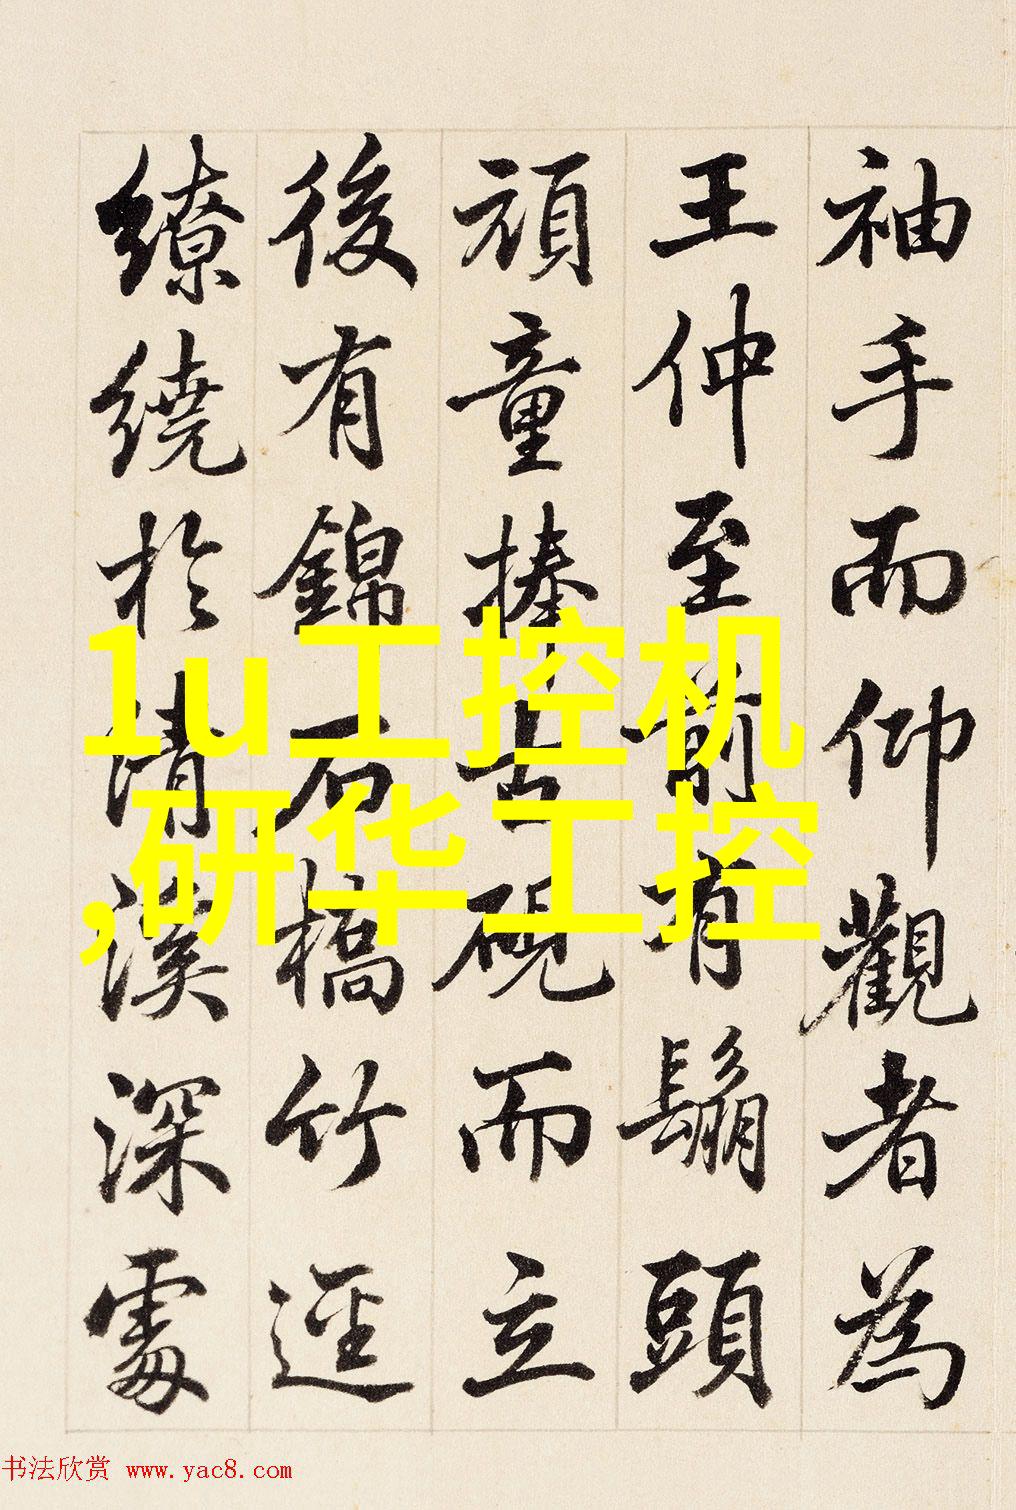 袖手而仰觀者為
王仲至前有鬅頭
頑童捧古硯而立
後有錦石橋竹逕
繚繞於清溪深處
1u工控机
,研华工控
书法欣赏 www.yac8.com